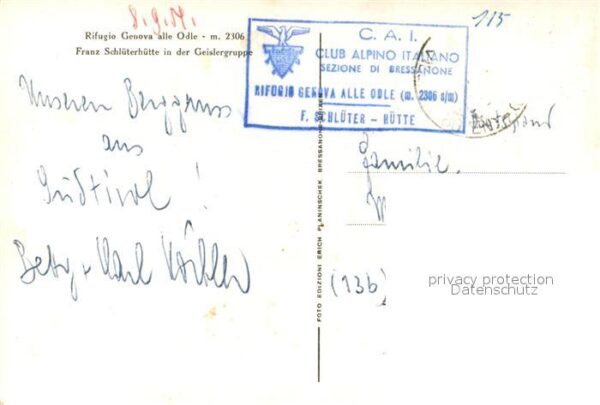 8.9.59.
Rifugio Genova alle Odle - m. 2306
Franz Schlüterhütte in der Geislergruppe
C. A. I.
CLUB ALPINO ITALIANO
SEZIONE DI BRESSANONE
RIFUGIO GENOVA ALLE ODLE (m. 2306 s/m)
F. SCHLÜTER - HÜTTE
115
Unseren Berggruss
aus
Südtirol !
Betty + Karl
Familie
(13b)
FOTO EDIZIONI ERICH PLANINSCHEK BRESSANONE
privacy protection
Datenschutz